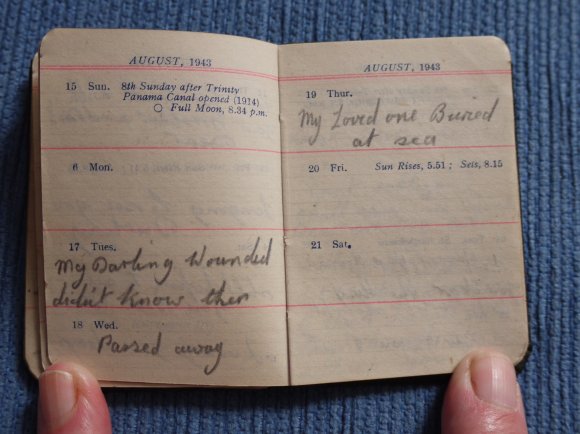 AUGUST, 1943
15 Sun. 8th Sunday after Trinity
Panama Canal opened (1914)
○ Full Moon, 8.34 p.m.
6 Mon.
17 Tues.
My Darling Wounded
didn't know then
18 Wed.
Passed away
AUGUST, 1943
19 Thur.
My Loved one Buried
at sea
20 Fri. Sun Rises, 5.51 ; Sets, 8.15
21 Sat.